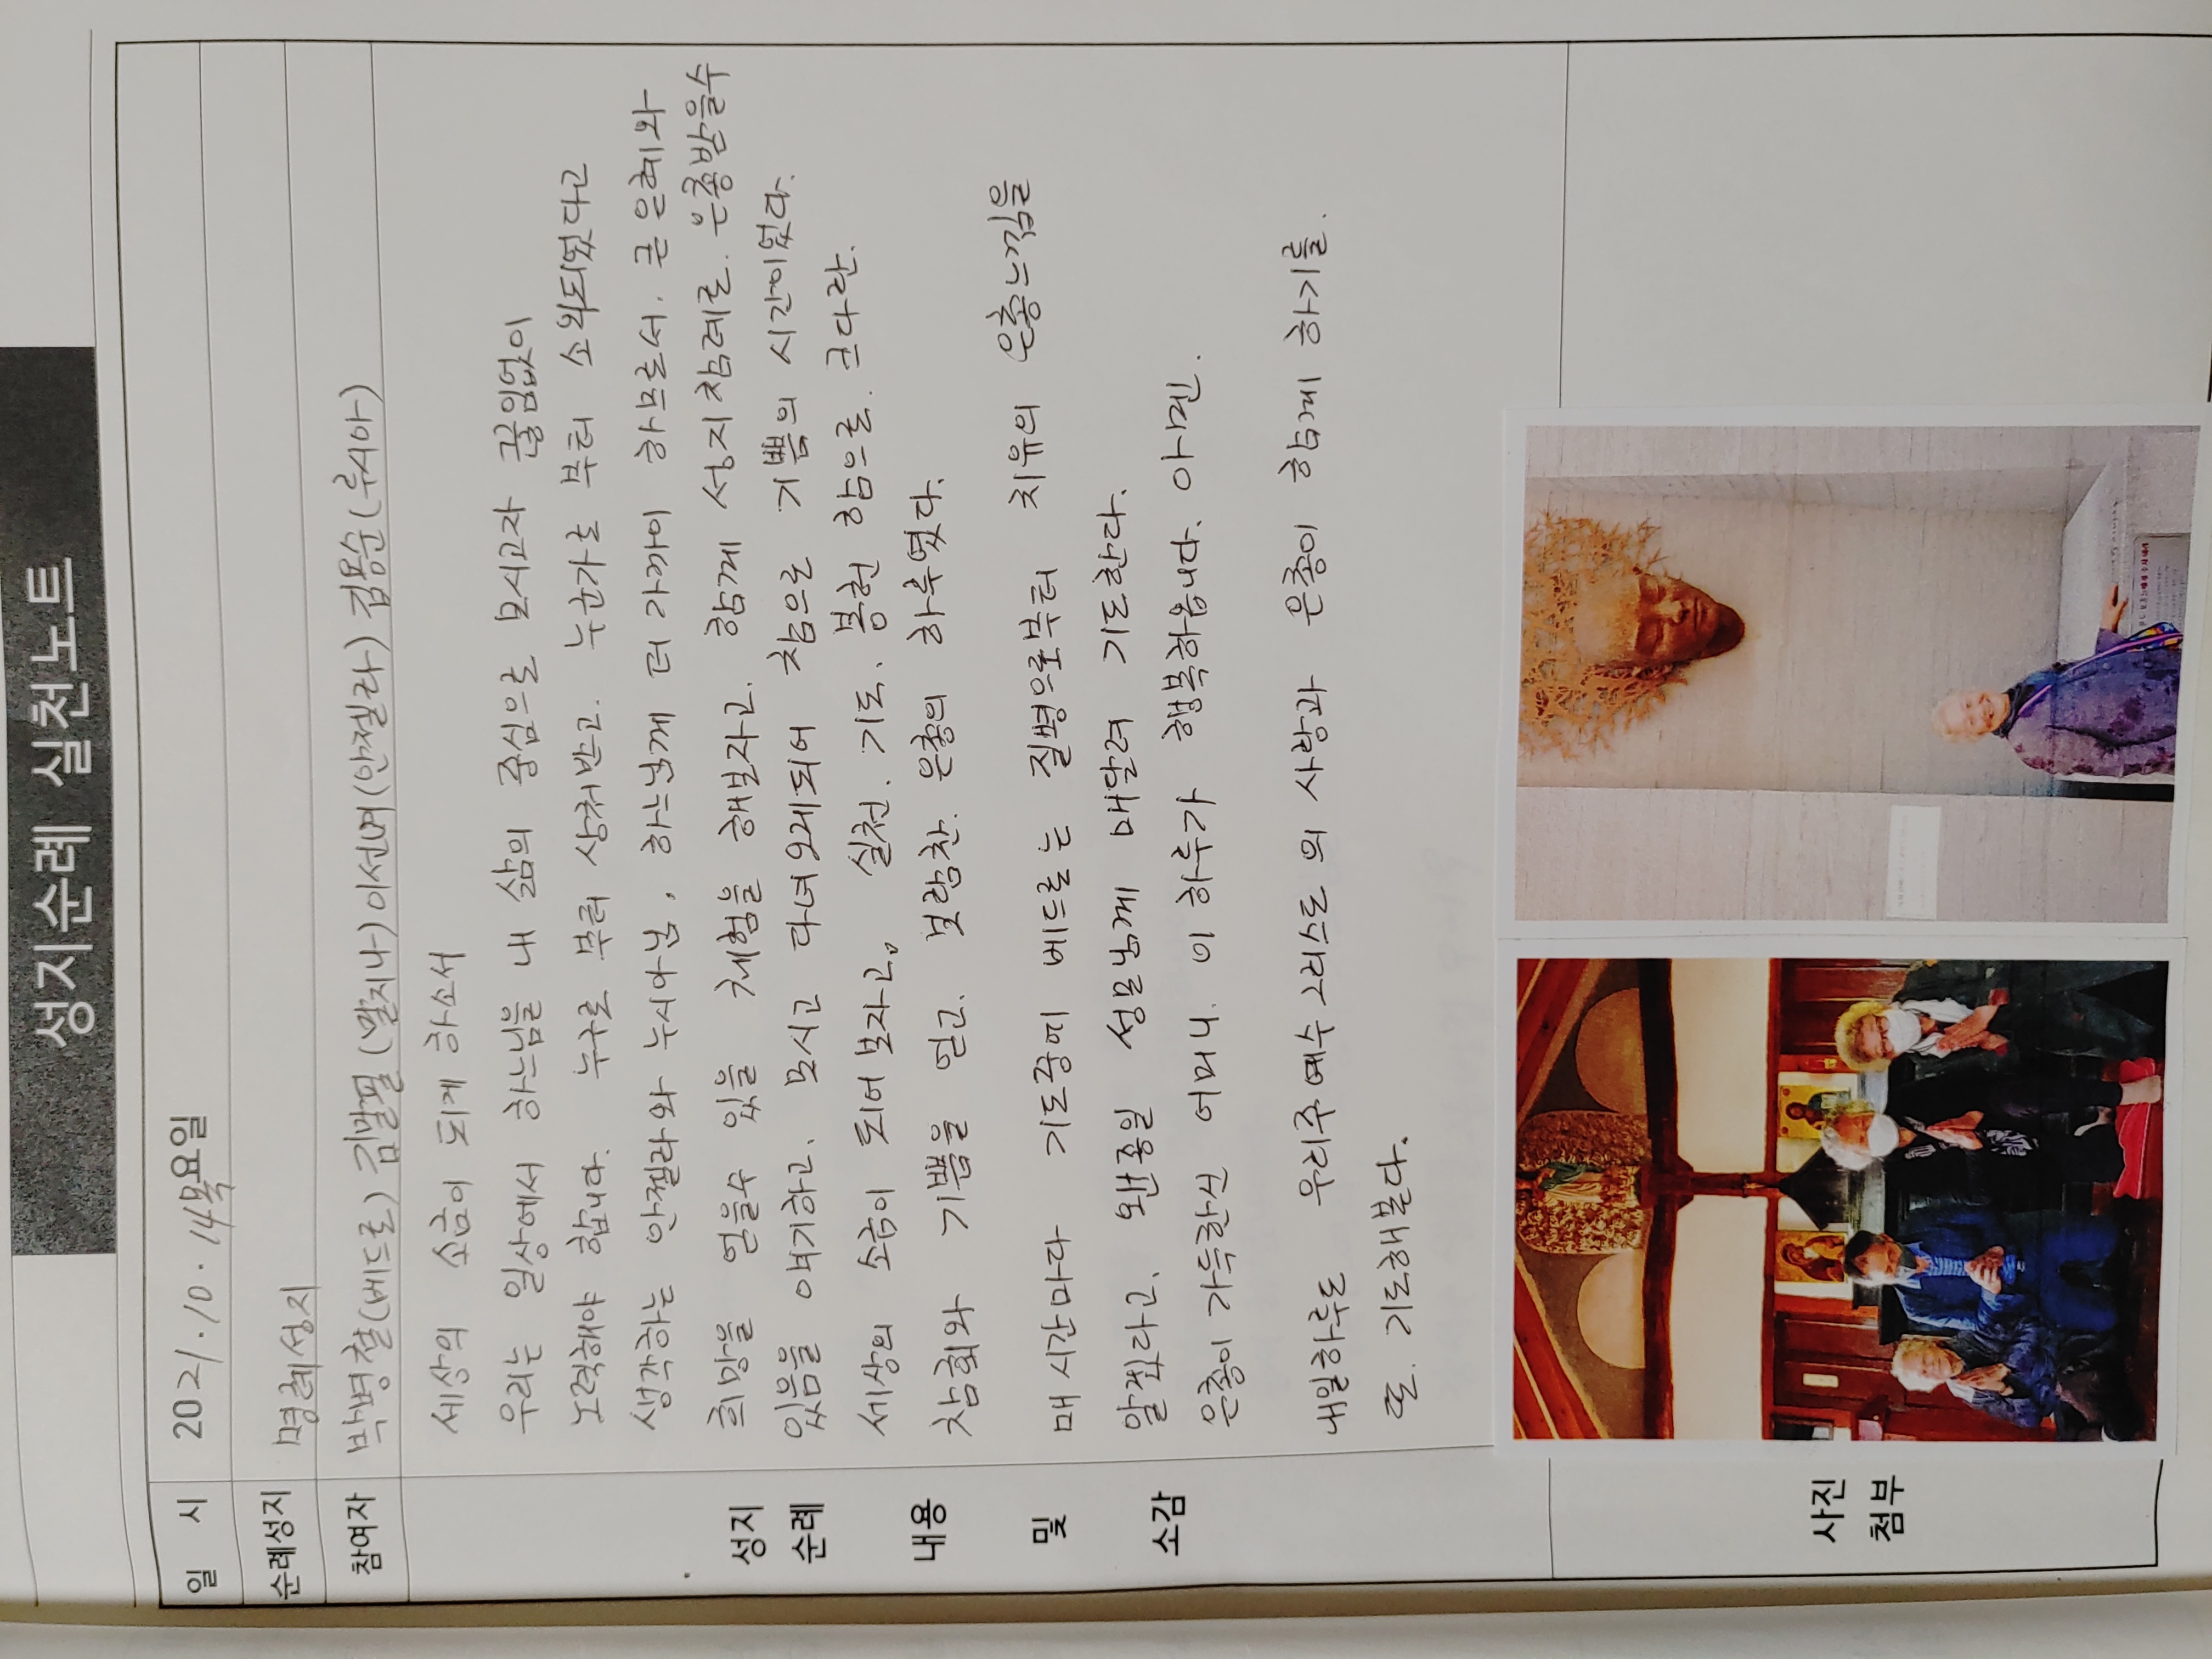 성지순례 실천노트
일 시
2021.10.14목요일
순례성지
명례성지
참여자
박병철(베드로) 김말필(말지나) 이선녀(안젤라) 김용순(루시아)
세상의 소금이 되게 하소서
우리는 일상에서 하느님을 내 삶의 중심으로 모시고자 끊임없이
노력해야 합니다. 누구로 부터 상처받고. 누군가로 부터 소외되었다고
생각하는 안젤라와 누시아님, 하느님께 더 가까이 하므로서. 큰 은혜와
희망을 얻을수 있을 체험을 해보자고. 함께 성지참례로. 은총받을수
있음을 얘기하고. 모시고 다녀오게되어 참으로 기쁨의 시간이었다.
세상의 소금이 되어보자고, 실천. 기도. 봉헌 함으로. 크다란.
참회와 기쁨을 얻고. 보람찬. 은총의 하루였다.
매 시간마다 기도중에 베드로는 질병으로부터 치유의 은총느낌을
알겠다고. 왠종일 성모님께 매달려 기도한다.
은총이 가득한신 어머니. 이 하루가 행복하옵니다. 아멘.
내일하루도 우리주 예수 그리스도 의 사랑과 은총이 함께 하기를.
또. 기도해본다.
성지
순례
내용
및
소감
사진
첨부